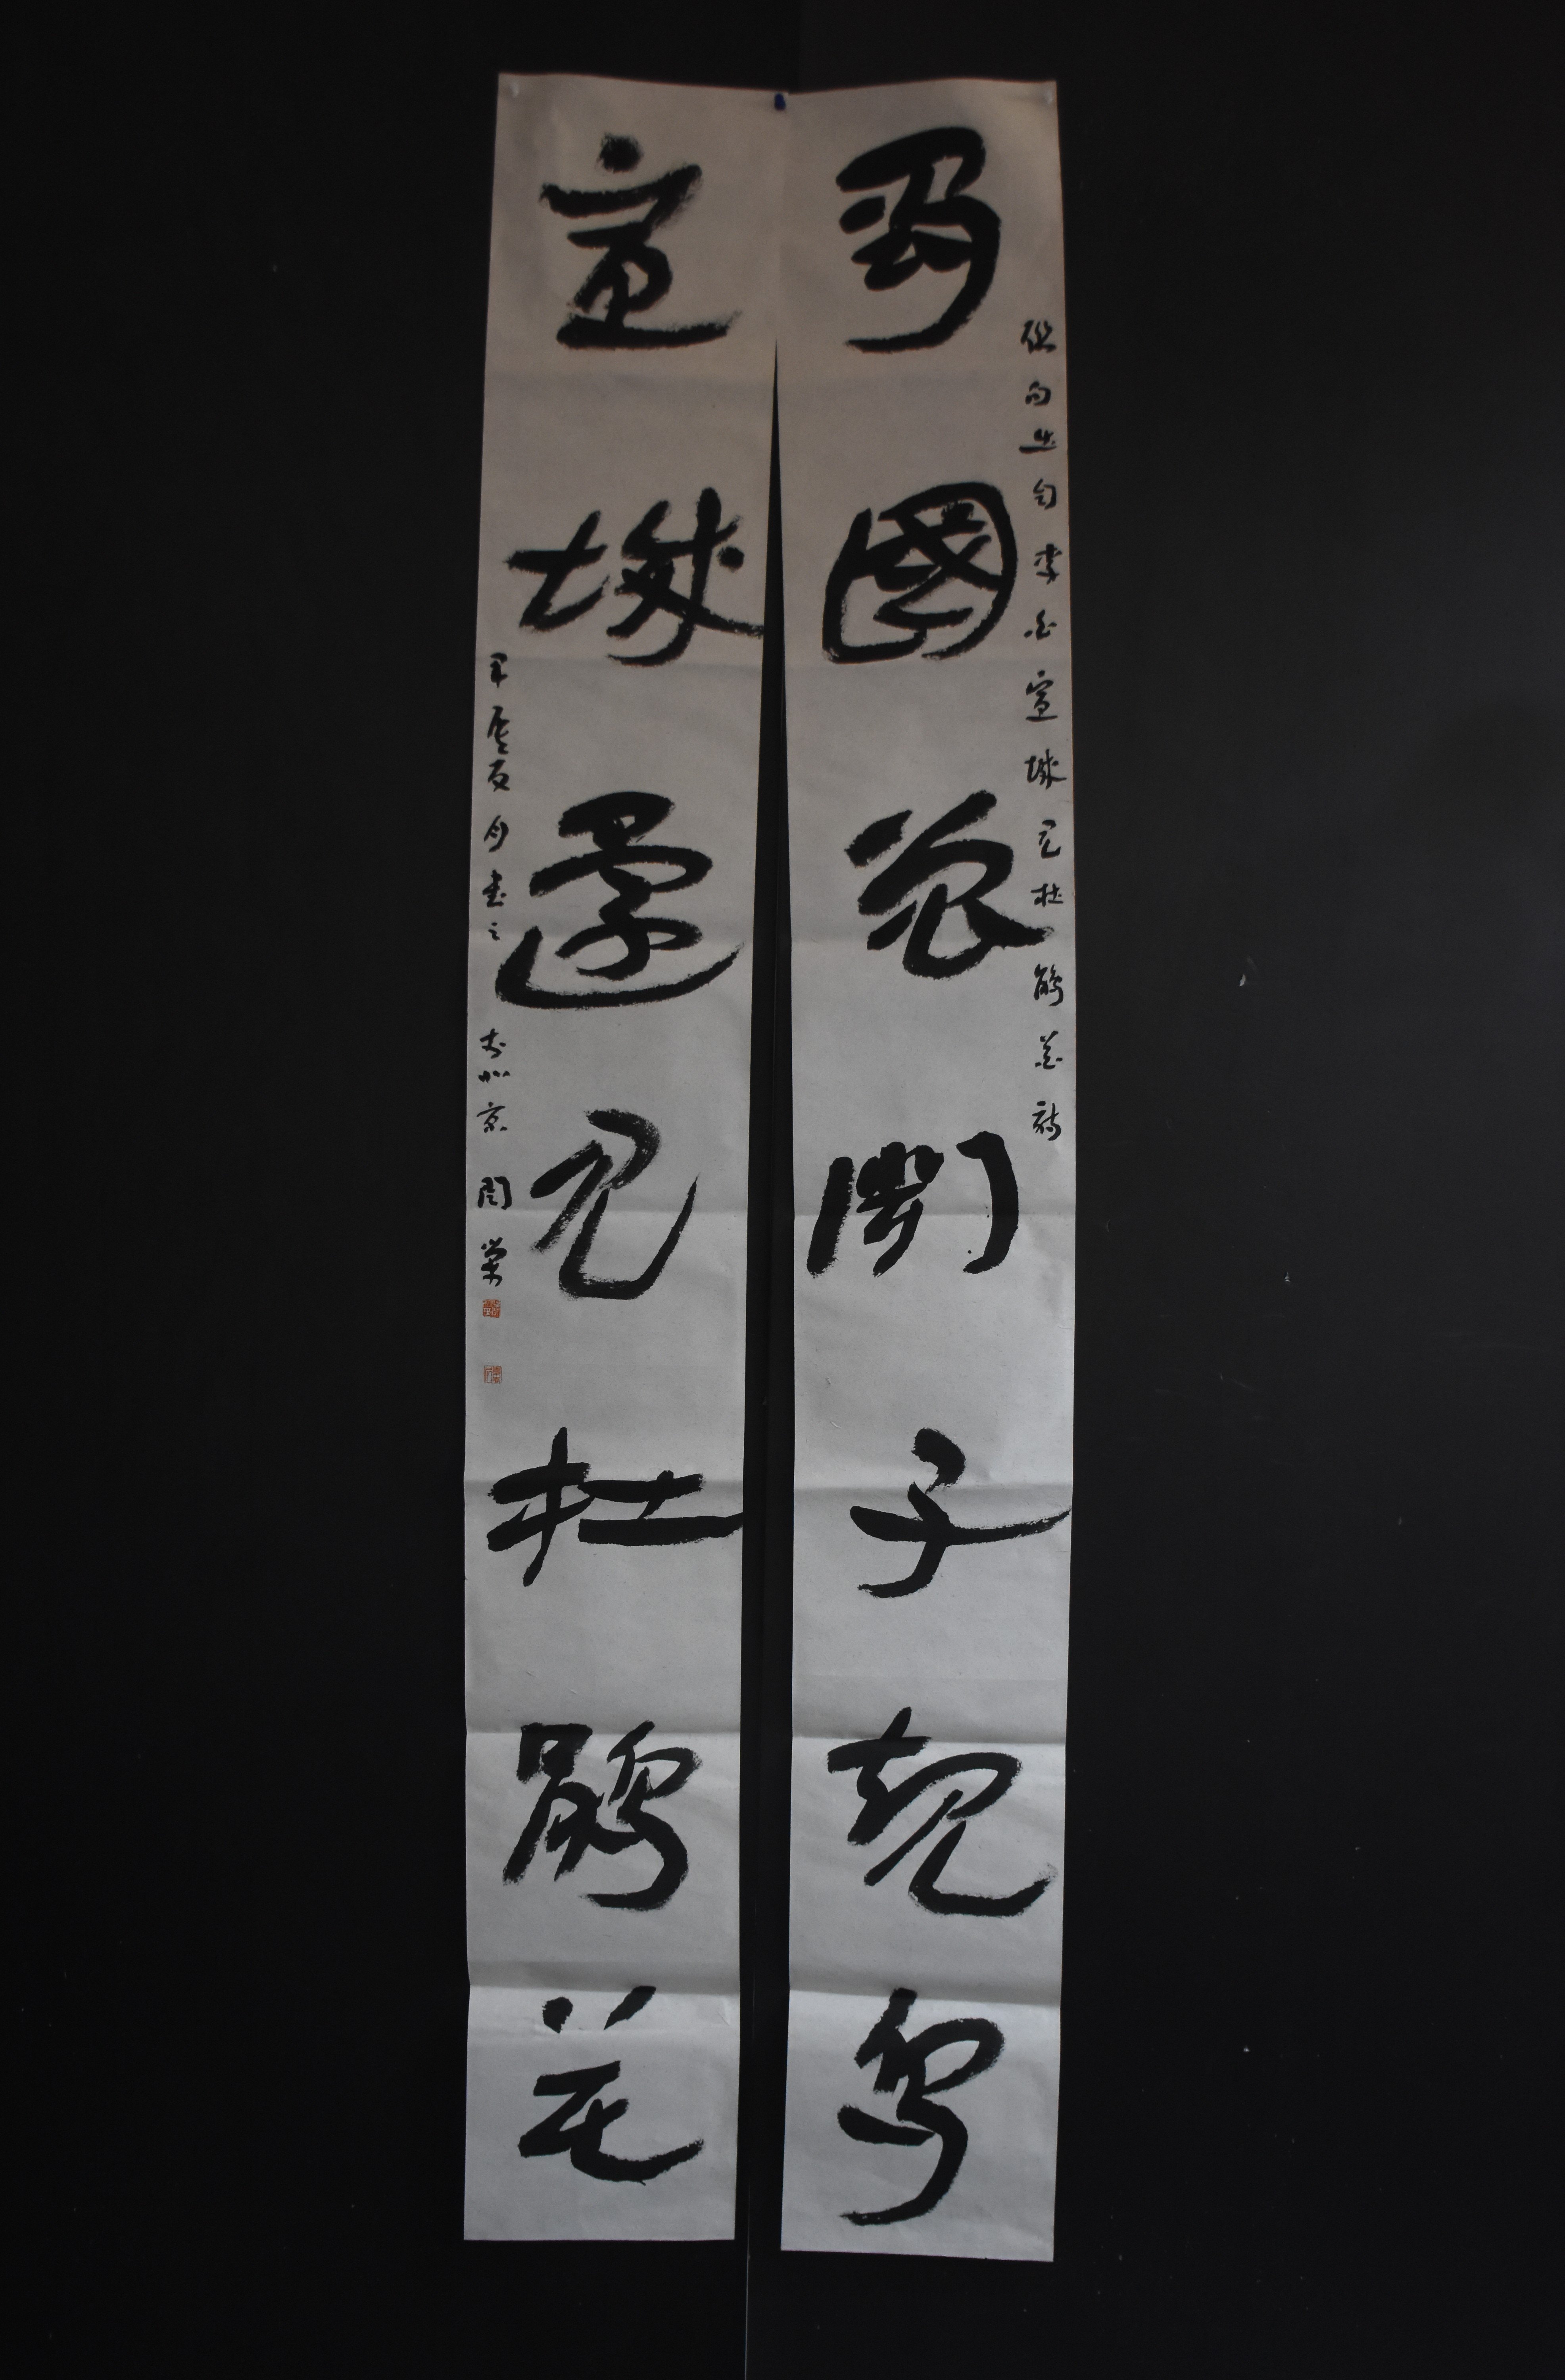 句李白宣城見杜鵑花詩
蜀國曾聞子規鳥
宣城還見杜鵑花
甲辰夏月書之於北京